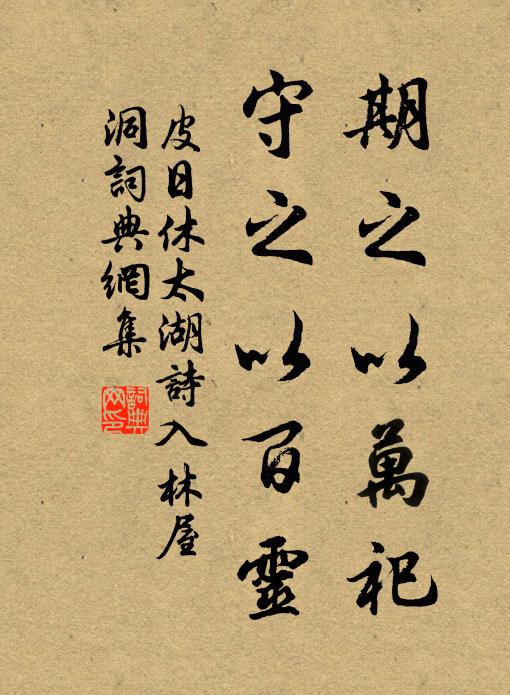 期之以萬祀
守之以百靈
皮日休太湖詩入林屋
洞詞典網集
詞典網印